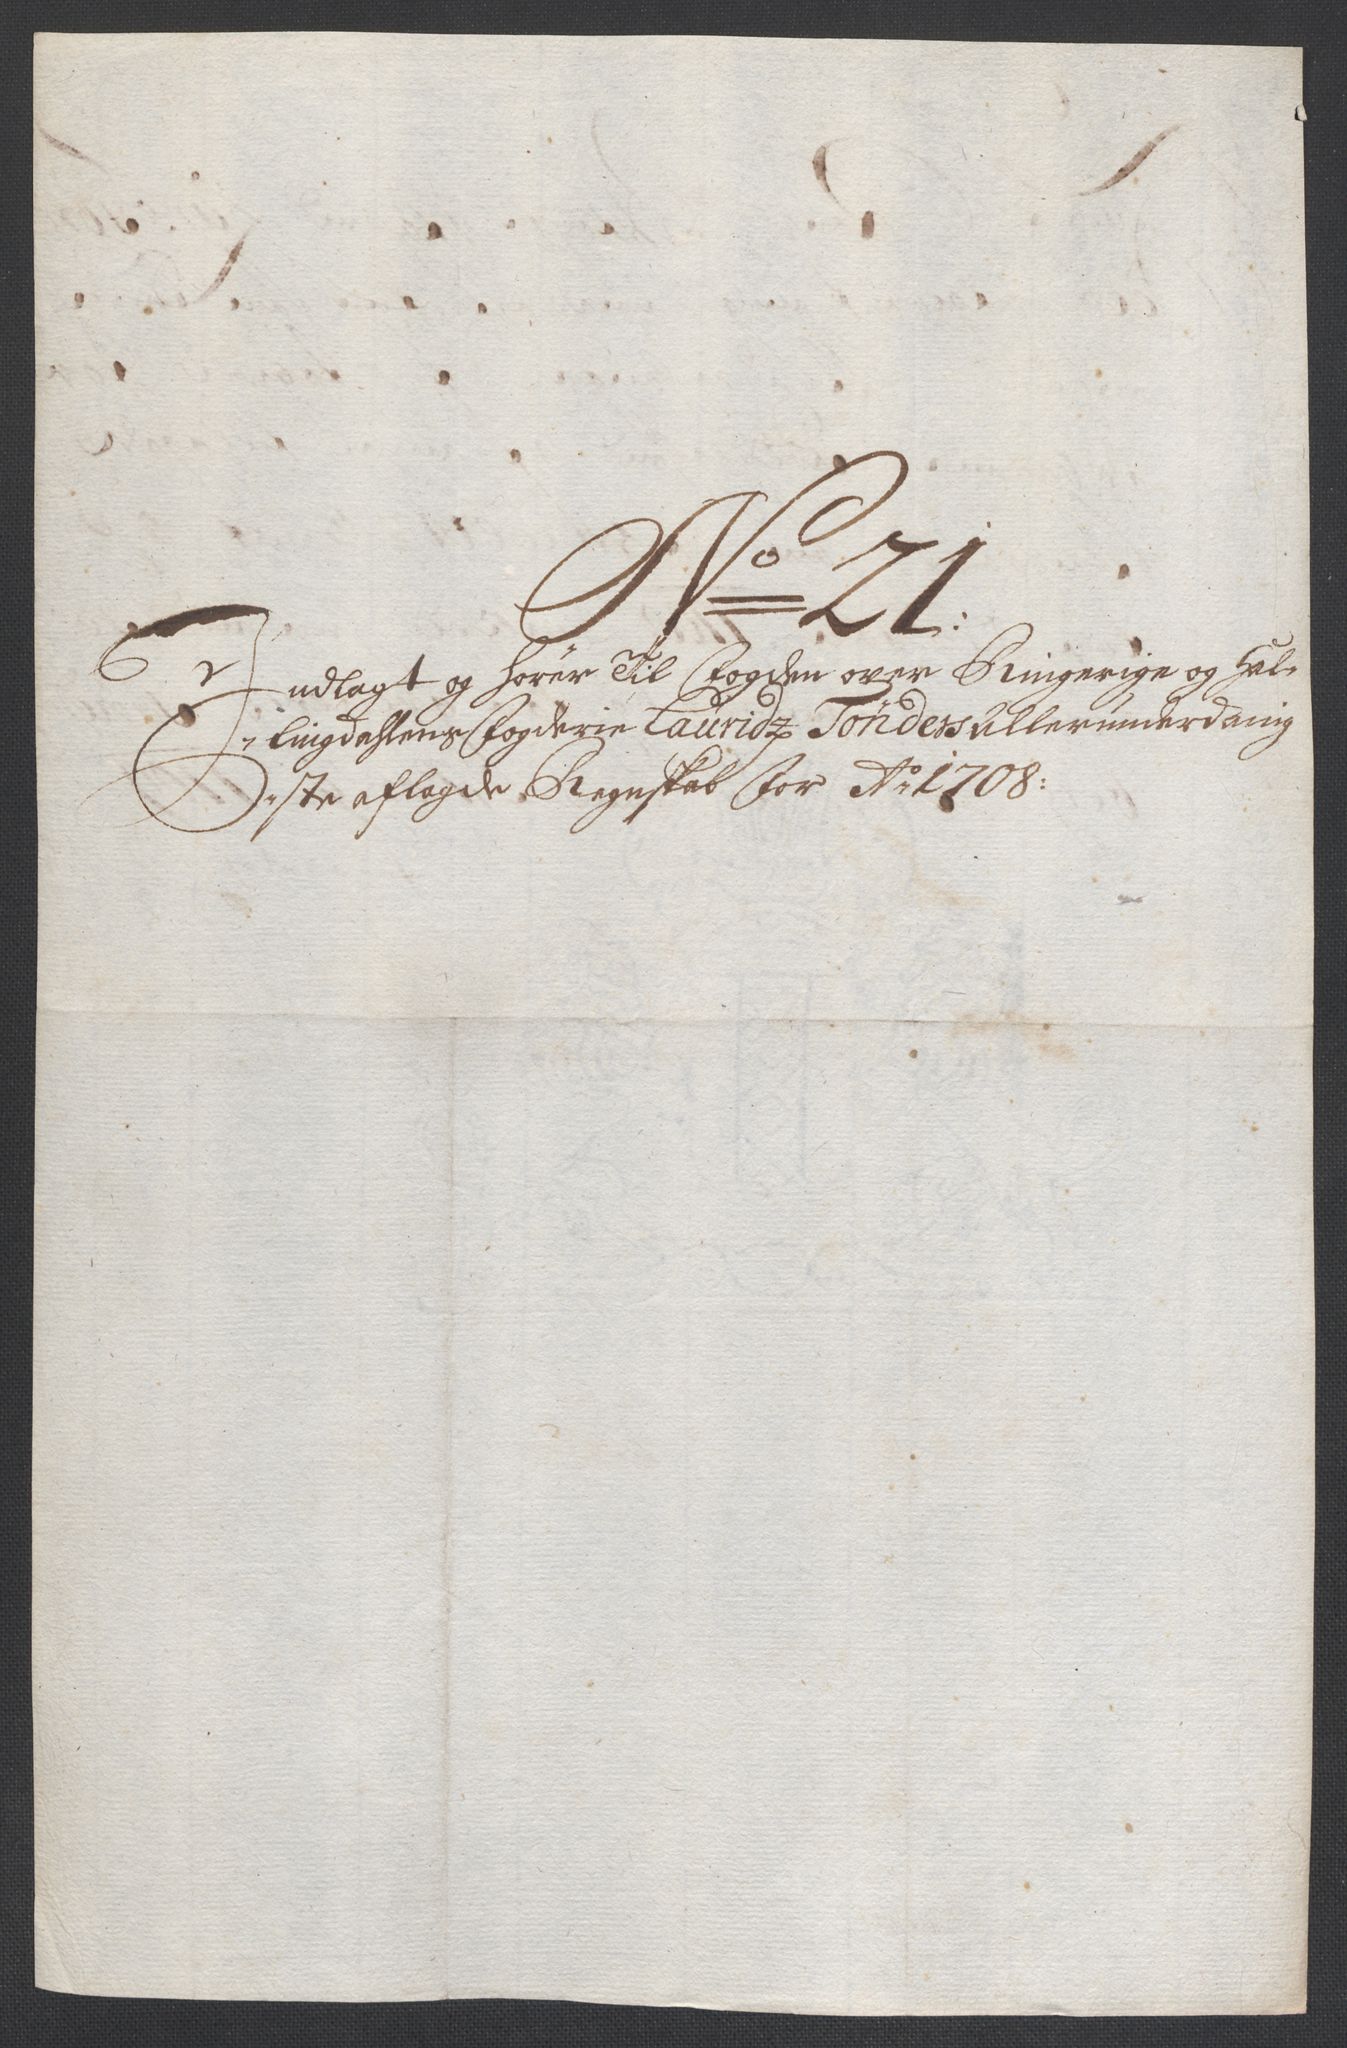 No 21:
Indlagt og hörer Til Fogden over Ringerige og Hal-
lingdahlens Fogderie Lauridz Tönders Allerunderdanig
ste aflagde Regnskab for Ao 1708: